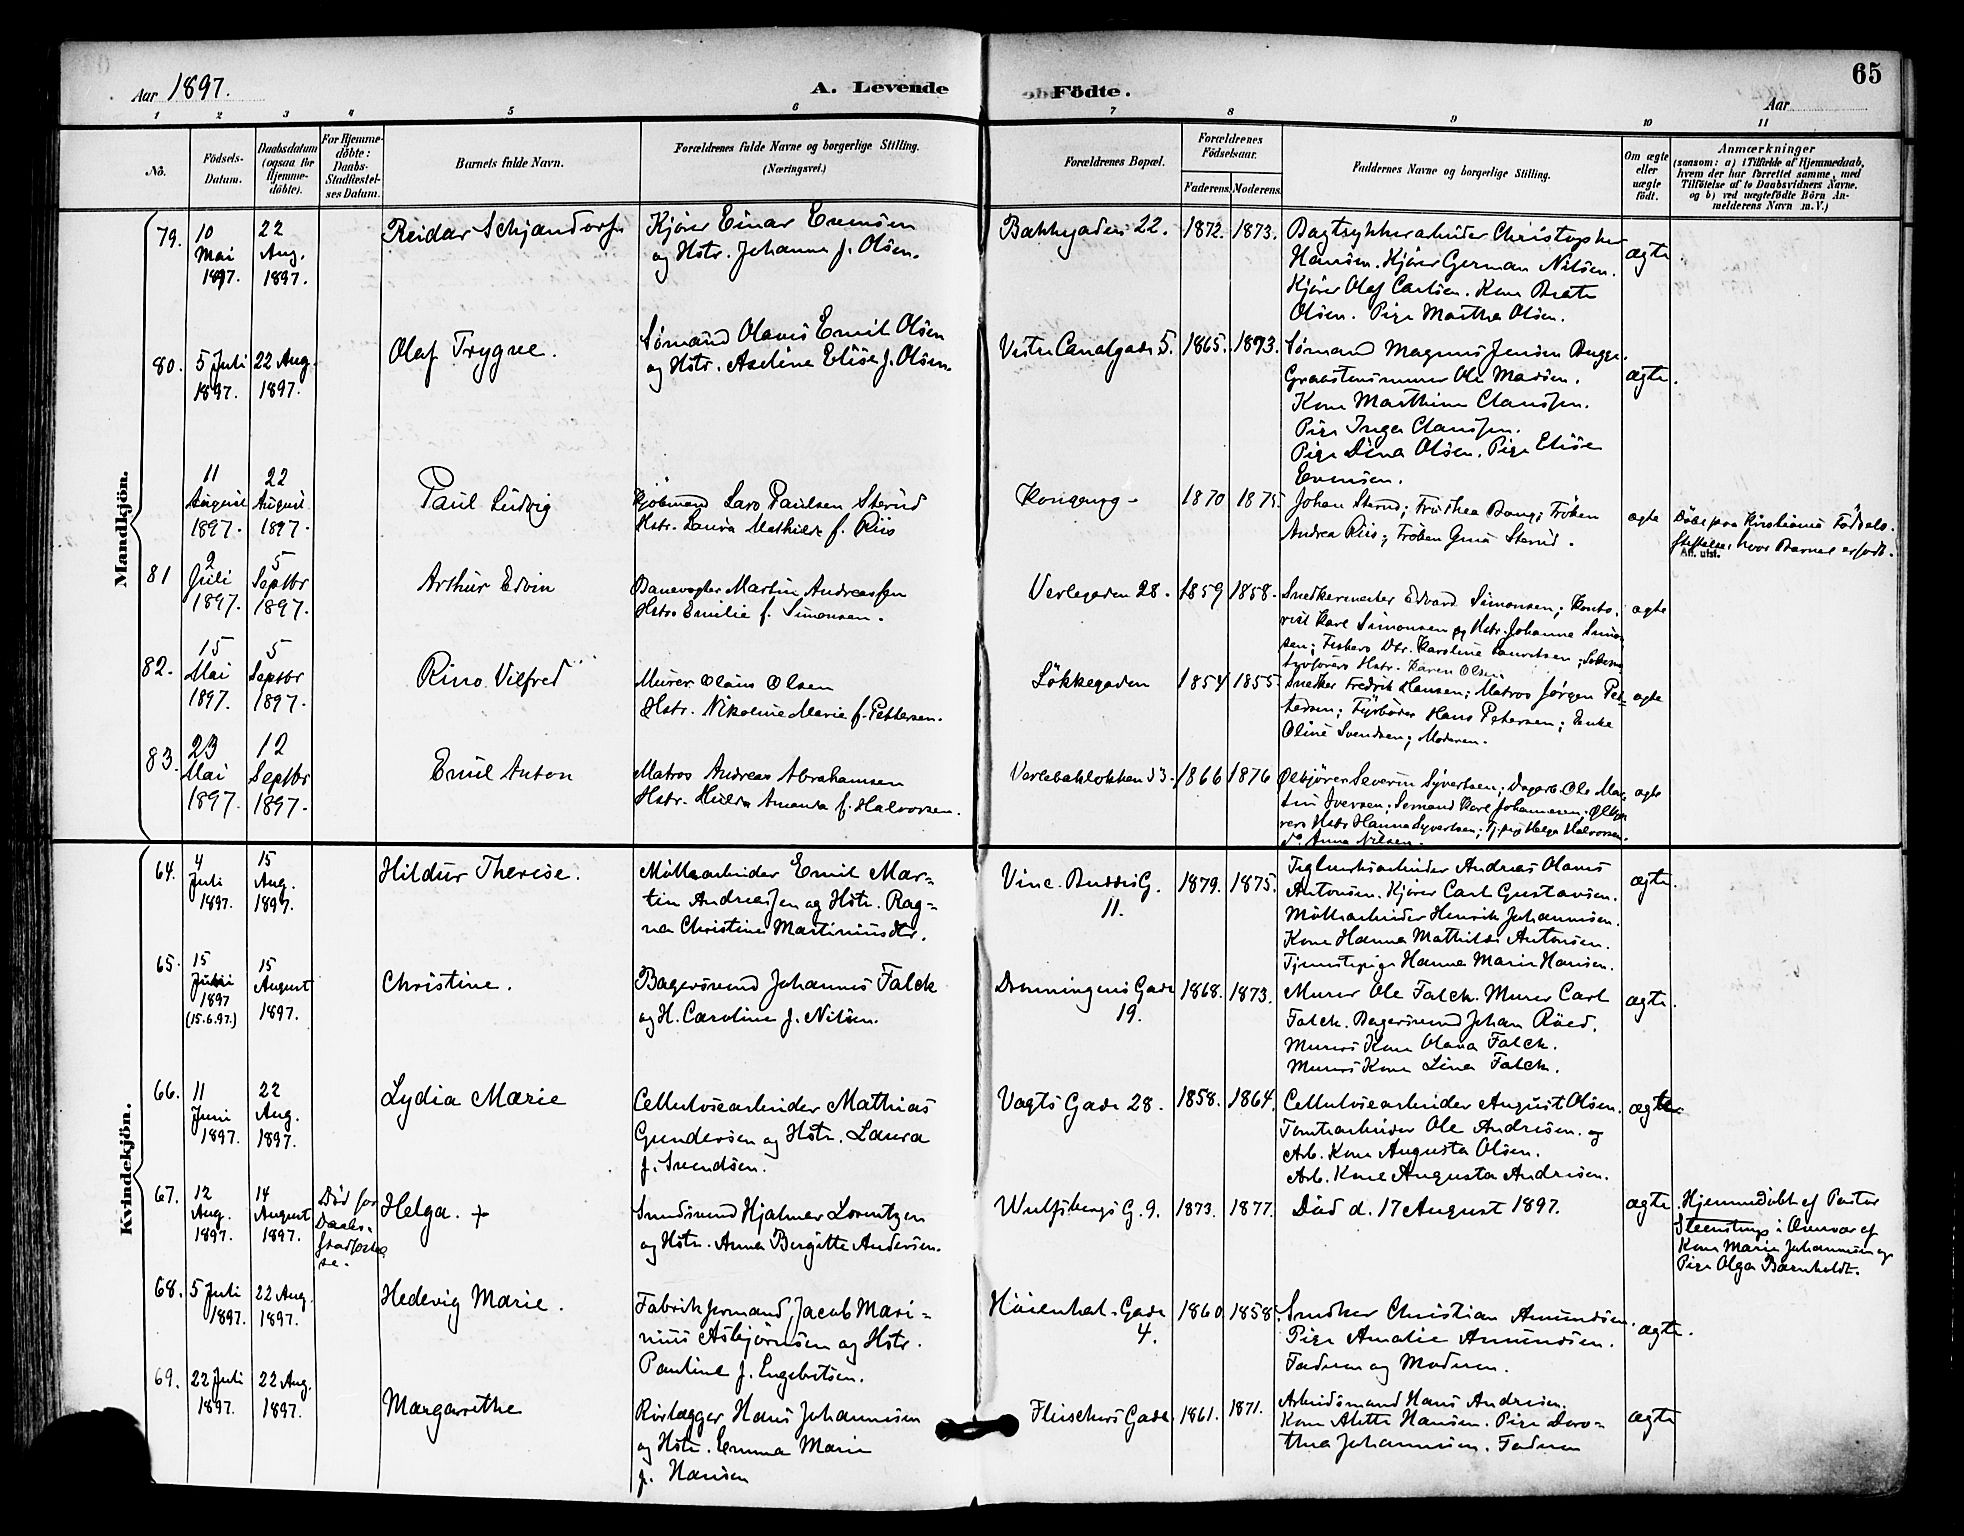 65
Aar 1897.
A. Levende
Fødte.
Aar
1 2 3 4 5 6 7 8 9 10 11
No.
Fødsels-
Datum.
Daabsdatum
(ogsaa for
Hjemme-
døbte).
For Hjemme-
døbte:
Daabs-
Stadfæstel-
ses Datum.
Barnets fulde Navn.
Forældrenes fulde Navne og borgerlige Stilling.
(Næringsvei.)
Forældrenes Bopæl.
Forældrenes
Fødselsaar.
Faderens. Moderens.
Faddernes Navne og borgerlige Stilling.
Om ægte
eller
uægte
født.
Anmærkninger
(saasom: a) i Tilfælde af Hjemmedaab,
hvem der har forrettet samme, med
Tilføielse af to Daabsvidners Navne.
og b) ved uægtefødte Børn An-
melderens Navn m. V.)
Mandkjön.
79.
10
Mai
1897.
22
Aug.
1897.
Reidar Schjandorf
Kjører Einar Evensen
og Hstr. Johanne f. Olsen.
Bakkegaden 22.
1872. 1873.
Christopher
Hansen. Kjører German Nilsen.
Kjører Olaf Carlsen. Kone Beate
Olsen. Pige Martha Olsen.
ægte
80.
5 Juli
1897.
22 Aug.
1897.
Olaf Trygve.
Sømand Olaus Emil Olsen
og Hstr. Axeline Elise f. Olsen.
Vestre Canalgade 5.
1865. 1873.
Sømand Magnus Jensen Bugge.
Ole Madsen.
Kone Marthine Claussen.
Pige Inga Claussen.
Pige Dina Olsen. Pige Elise
Evensen.
ægte.
11
August
1897.
22
August
1897.
Paul Ludvig
Kjøbmand Lars Paulsen Sterud
Hstr. Laura Mathilde f. Riis
Kongensg.
1870 1875.
Johan Sterud; Fru Thea Bang; Frøken
Andrea Riis; Frøken Gina Sterud.
ægte
Döbt paa Kristiania Födsels-
stiftelse, hvor Barnet er födt.
Att. utst.
81
2
Juli
1897.
5
Septbr
1897.
Arthur Edvin
Banevogter Martin Andreassen
Hstr. Emilie f. Simonsen.
Verlegaden 28.
1859 1858.
Snedkermester Edvard Simonsen; Konto-
rist Karl Simonsen og Hstr. Johanne Simon-
sen; Fiskers Dtr. Karoline Lauritsen;
Hstr. Karen Olsen.
ægte
82.
15
Mai
1897.
5
Septbr
1897.
Rino Vilfred
Murer Olaus Olsen
Hstr. Nikoline Marie f. Pettersen.
Lökkegaden
1854 1855
Snedker Fredrik Hansen; Matros Jørgen Pet-
tersen; Fyrbøder Hans Petersen; Enke
Oline Svendsen; Moderen.
ægte
83.
23
Mai
1897.
12
Septbr
1897.
Emil Anton
Matros Andreas Abrahamsen
Hstr. Hulda Amanda f. Halvorsen.
Verlebaklökken 23.
1866 1876
Ølkjører Severin Syvertsen; Dagarb. Ole Mar-
tin Iversen; Sømand Karl Johannesen; Ølkjø-
rers Hstr. Hanna Syvertsen; Tj. pige Helga Halvorsen.
do Anna Nilsen.
ægte
Kvindekjön.
64.
4
Juli
1897.
15
Aug.
1897.
Hildur Therese.
Møllearbeider Emil Mar-
tin Andreassen og Hstr. Rag-
na Christine Martiniusdtr.
Vinc. Buddes G.
11.
1879. 1875.
Teglverksarbeider Andreas Olaus
Antonsen. Kjører Carl Gustavsen.
Møllearbeider Henrik Johannesen.
Kone Hanna Mathilde Antonsen.
Tjenestepige Hanna Marie Hansen.
ægte.
65.
15
1897
(15.6.97.)
15
August
1897.
Christine.
Bagersvend Johannes Falck
og H. Caroline f. Nilsen.
Dronningens Gade
19.
1868. 1873.
Murer Ole Falck. Murer Carl
Falck. Bagersvend Johan Röed.
Murers Kone Olava Falck.
Murers Kone Lina Falck.
ægte.
66.
11
Juni
1897.
22
Aug.
1897.
Lydia Marie
Cellulosearbeider Mathias
Gundersen og Hstr. Laura
f. Svendsen.
Vagts Gade 28.
1858. 1864.
Cellulosearbeider August Olsen.
Tomtearbeider Ole Andresen. og
Arb. Kone Augusta Olsen.
Arb. Kone Augusta Andresen.
ægte
67.
12
Aug.
1897.
14
August
1897.
Död før
Daabs-
stadfæstel
se.
Helga. +
Smedsvend Hjalmar Lorentzen
og Hstr. Anna Bergitte Andersen.
Wulfsbergs G. 9.
1873. 1877.
Död d. 17 August 1897.
ægte.
Hjemmedöbt af Pastor
Steenstrup i Nærvær af
Kone Marie Johannesen og
Pige Olga Barnholdt.
68.
5 Juli
1897.
22 Aug.
1897.
Hedevig Marie.
Fabrikformand, Jacob Mari-
nius Asbjørnsen og Hstr.
Pauline f. Engebretsen.
Höienhal-Gade
4.
1860 1858.
Snedker Christian Amundsen.
Pige Amalie Amundsen.
Faderen og Moderen.
ægte.
69.
22 Juli
1897.
22 Aug.
1897.
Margarethe
Rørlægger Hans Johannesen
og Hstr. Emma Marie
f. Hansen
Fleischers Gade.
1861. 1871.
Arbeidsmand Hans Andresen.
Kone Alette Hansen. Pige Doro-
thea Johannesen. Faderen
ægte